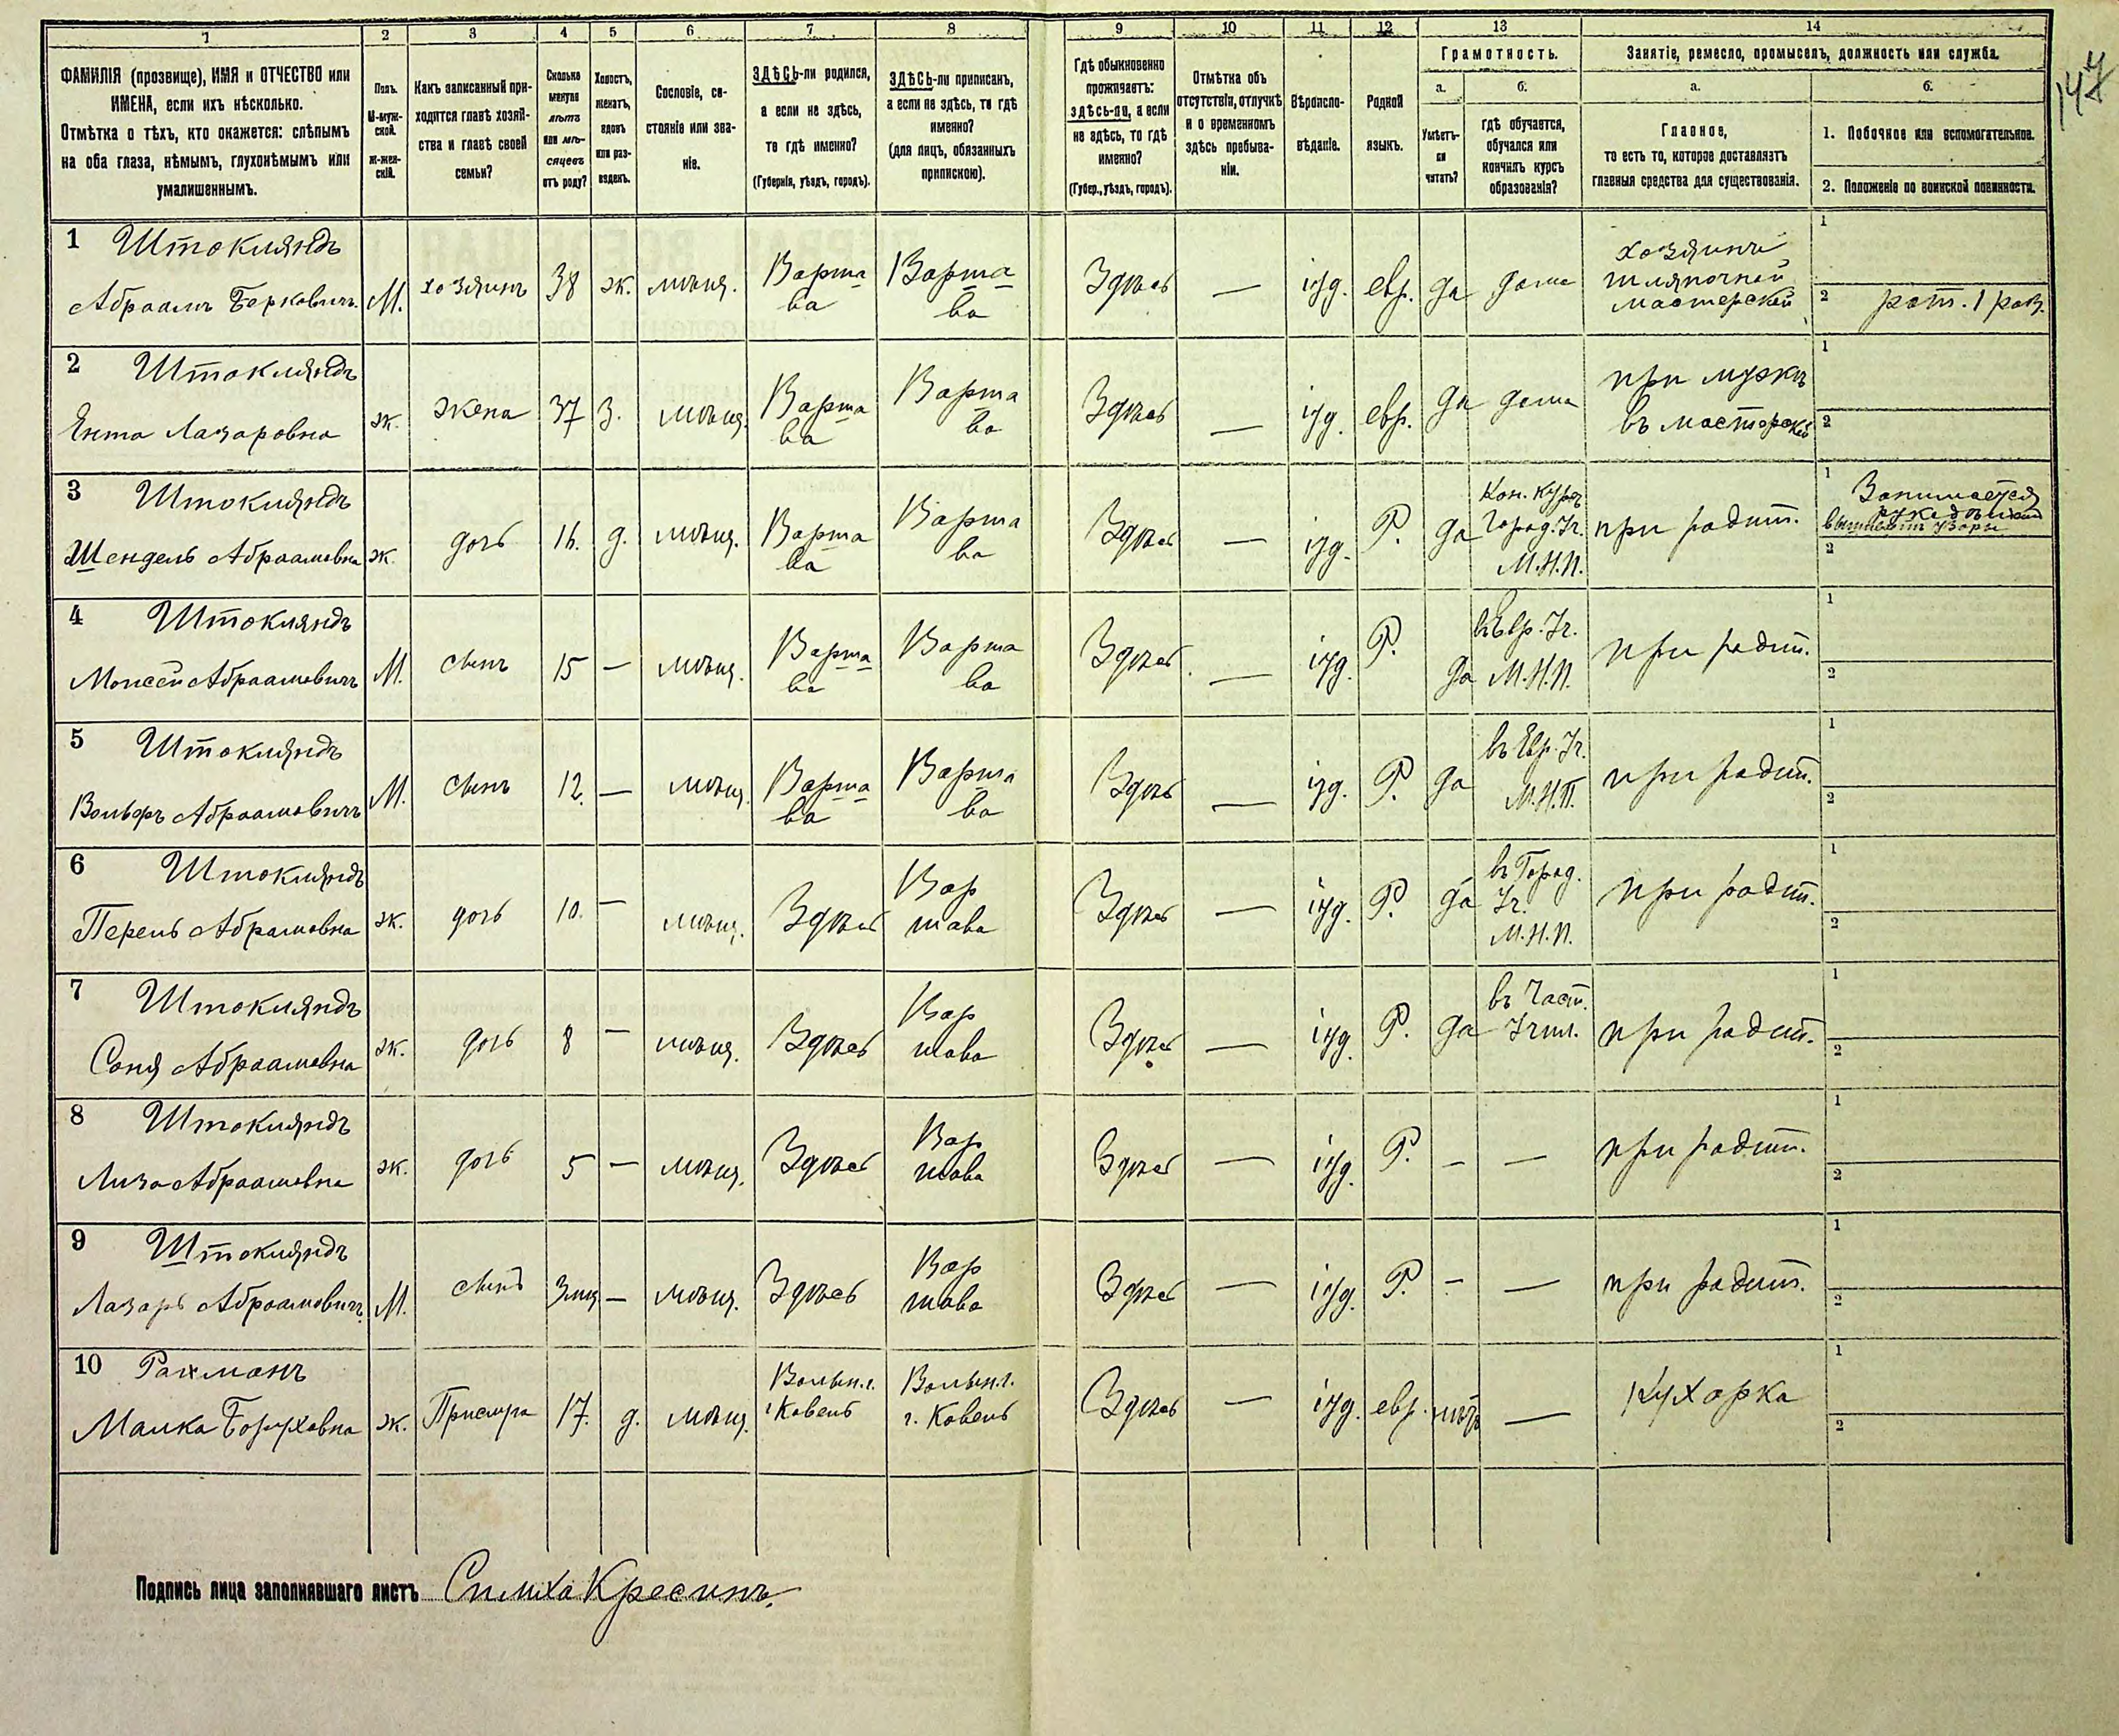 147
1 2 3 4 5 6 7 8 9 10 11 12 13 14
ФАМИЛІЯ (прозвище), ИМЯ и ОТЧЕСТВО или
ИМЕНА, если ихъ нѣсколько.
Отмѣтка о тѣхъ, кто окажется: слѣпымъ
на оба глаза, нѣмымъ, глухонѣмымъ или
умалишеннымъ.
Полъ.
М-муж-
ской.
Ж-жен-
скій.
Какъ записанный при-
ходится главѣ хозяй-
ства и главѣ своей
семьи?
Сколько
минуло
лѣтъ
или мѣ-
сяцевъ
отъ роду?
Холостъ,
женатъ,
вдовъ
или раз-
веденъ.
Сословіе, со-
стояніе или зва-
ніе.
ЗДѢСЬ-ли родился,
а если не здѣсь,
то гдѣ именно?
(Губернія, уѣздъ, городъ).
ЗДѢСЬ-ли приписанъ,
а если не здѣсь, то гдѣ
именно?
(для лицъ, обязанныхъ
припискою).
Гдѣ обыкновенно
проживаетъ:
здѣсь-ли, а если
не здѣсь, то гдѣ
именно?
(Губер., уѣздъ, городъ).
Отмѣтка объ
отсутствіи, отлучкѣ
и о временномъ
здѣсь пребыва-
ніи.
Вѣроиспо-
вѣданіе.
Родной
языкъ.
Грамотность.
а.
Умѣетъ-
ли
читать?
б.
гдѣ обучается,
обучался или
кончилъ курсъ
образованія?
Занятіе, ремесло, промыселъ, должность или служба.
а.
Главное,
то есть то, которое доставляетъ
главныя средства для существованія.
б.
1. Побочное или вспомогательное.
2. Положеніе по воинской повинности.
1 Штокляндъ
Абраамъ Берковичъ М. хозяинъ 38 ж. мѣщ. Варша
ва Варша
ва Здѣсь — іуд. евр. да дома хозяинъ
шляпочной
мастерской 1
2 рат. 1 раз.
2 Штокляндъ
Ента Лазаровна ж. жена 37 З. мѣщ. Варша
ва Варша
ва Здѣсь — іуд. евр. да дома при мужѣ
въ мастерской 1
2
3 Штокляндъ
Шендель Абраамовна ж. дочь 16. д. мѣщ. Варша
ва Варша
ва Здѣсь — іуд. Р. да Кон. курсъ
Город. Уч.
М.Н.П. при родит. 1 Занимается
рукодѣліемъ
вышиваетъ узоры
2
4 Штокляндъ
Моисей Абраамовичъ М. сынъ 15 — мѣщ. Варша
ва Варша
ва Здѣсь — іуд. Р. да въ Евр. Уч.
М.Н.П. при родит. 1
2
5 Штокляндъ
Вольфъ Абраамовичъ М. сынъ 12. — мѣщ. Варша
ва Варша
ва Здѣсь — іуд. Р. да въ Евр. Уч.
М.Н.П. при родит. 1
2
6 Штокляндъ
Перель Абрамовна ж. дочь 10. — мѣщ. Здѣсь Вар
шава Здѣсь — іуд. Р. да въ Город.
Уч.
М.Н.П. при родит. 1
2
7 Штокляндъ
Соня Абраамовна ж. дочь 8 — мѣщ. Здѣсь Вар
шава Здѣсь — іуд. Р. да въ Част.
Учил. при родит. 1
2
8 Штокляндъ
Лиза Абраамовна ж. дочь 5 — мѣщ. Здѣсь Вар
шава Здѣсь — іуд. Р. — — при родит. 1
2
9 Штокляндъ
Лазарь Абраамовичъ М. сынъ 3 мѣс — мѣщ. Здѣсь Вар
шава Здѣсь — іуд. Р. — — при родит. 1
2
10 Рахманъ
Малка Боруховна ж. Прислуга 17. д. мѣщ. Волын.г.
г. Ковель Волын.г.
г. Ковель Здѣсь — іуд. евр. нѣтъ — Кухарка 1
2
Подпись лица заполнявшаго листъ Симха Кресинъ.